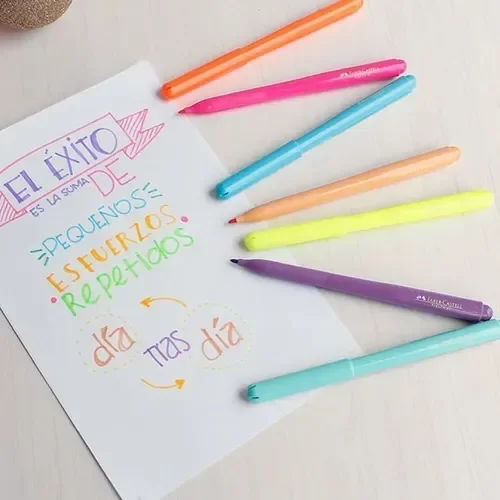 EL ÉXITO
ES LA SUMA DE
PEQUEÑOS
ESFUERZOS
REPetidos
día tras día
FABER-CASTELL